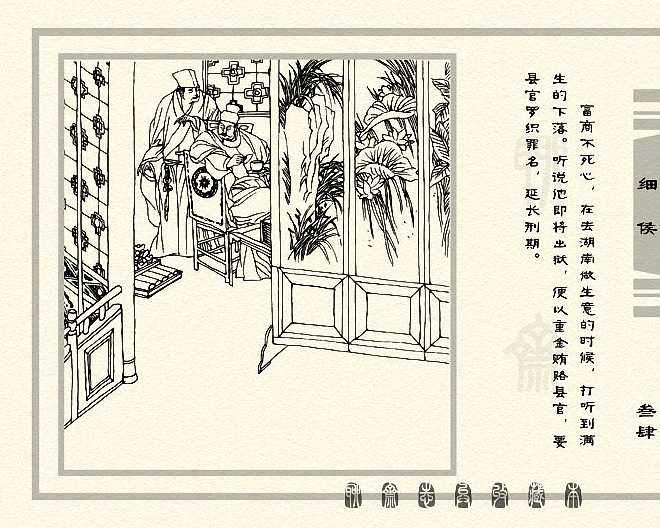 细侯
叁肆
富商不死心，在去湖南做生意的时候，打听到满
生的下落。听说他即将出狱，便以重金贿赂县官，要
县官罗织罪名，延长刑期。